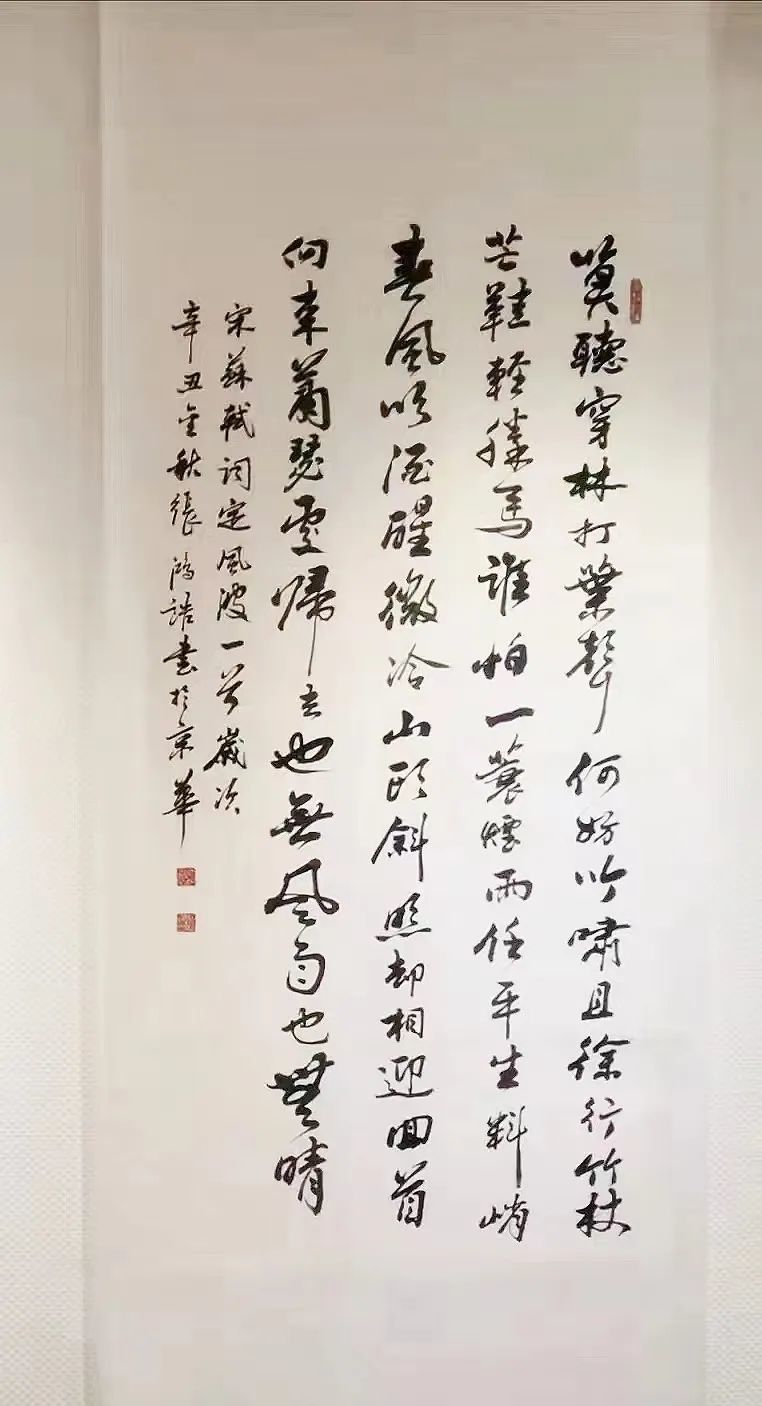 莫聽穿林打葉聲何妨吟嘯且徐行竹杖
芒鞋輕勝馬誰怕一蓑煙雨任平生料峭
春風吹酒醒微冷山頭斜照却相迎回首
向来蕭瑟處歸去也無風雨也無晴
宋蘇軾詞定風波一首歲次
辛丑金秋張鴻誥書於京華